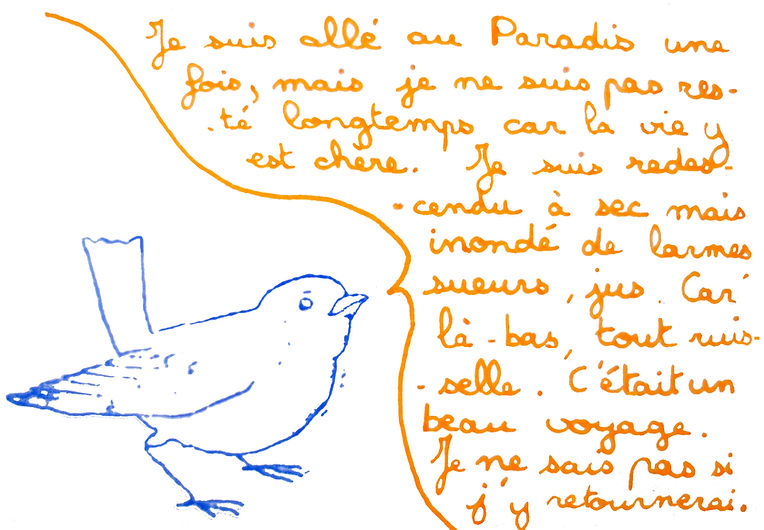 Je suis allé au Paradis une
fois, mais je ne suis pas res-
-té longtemps car la vie y
est chère. Je suis redes-
-cendu à sec mais
inondé de larmes
sueurs, jus. Car
là-bas, tout ruis-
-selle. C'était un
beau voyage.
Je ne sais pas si
j'y retournerai.